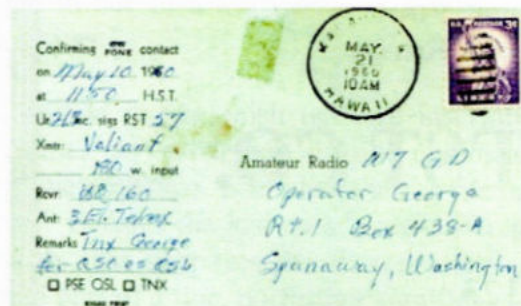 Confirming FONE contact
on May 10 1960
at 11:50 H.S.T.
Ur 21 mc. sigs RST 57
Xmtr: Valiant
180 w. input
Rcvr: 160
Ant: 3 El.
Remarks Tnx George
for QSO es QSL
☐ PSE QSL ☐ TNX
MAY
21
1960
10 AM
HAWAII
U.S. POSTAGE 3¢
LIBERTY
Amateur Radio GD
Operator George
Rt. 1 Box 438-A
Spanaway, Washington